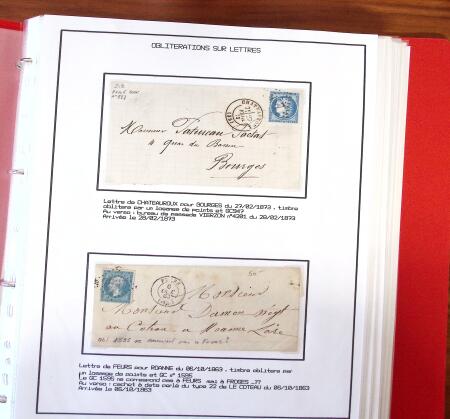 OBLITERATIONS SUR LETTRES
CHATEAUROUX
Monsieur
4 Quai du Bassin
Bourges
Lettre de CHATEAUROUX pour BOURGES du 27/02/1873 . timbre
oblitere par un losange de points et GC947
Au verso : bureau de passade VIERZON n°4201 du 28/02/1873
Arrivée le 28/02/1873
FEURS
Monsieur
Monsieur Damon Négt
au Coteau a Roanne Loire
Lettre de FEURS pour ROANNE du 06/10/1863 . timbre oblitere par
un losange de points et GC n° 1595
Le GC 1595 ne correspond pas à FEURS mai à FROGES .??
Au verso : cachet à date perlé du type 22 de LE COTEAU du 06/10/1863
Arrivée le 06/10/1863